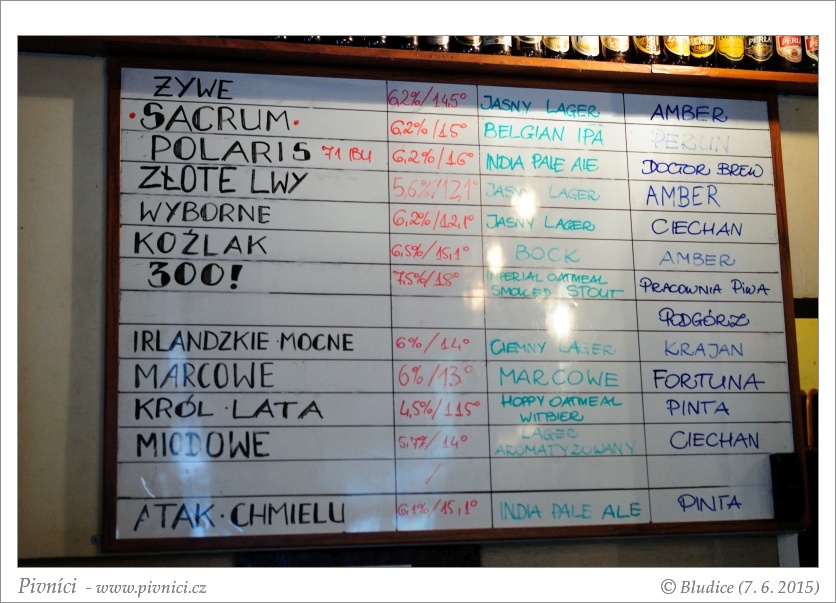 ŻYWE 6,2%/14,5° JASNY LAGER AMBER
•SACRUM• 6,2%/15° BELGIAN IPA PERUN
POLARIS 71 IBU 6,2%/16° INDIA PALE ALE DOCTOR BREW
ZŁOTE LWY 5,6%/12,1° JASNY LAGER AMBER
WYBORNE 6,2%/12,1° JASNY LAGER CIECHAN
KOŹLAK 6,5%/15,1° BOCK AMBER
300! 7,5%/18° IMPERIAL OATMEAL SMOKED STOUT PRACOWNIA PIWA
PODGÓRZ
IRLANDZKIE MOCNE 6%/14° CIEMNY LAGER KRAJAN
MARCOWE 6%/13° MARCOWE FORTUNA
KRÓL LATA 4,5%/11,5° HOPPY OATMEAL WITBIER PINTA
MIODOWE 5,7%/14° LAGER AROMATYZOWANY CIECHAN
ATAK CHMIELU 6,1%/15,1° INDIA PALE ALE PINTA
Pivníci - www.pivnici.cz © Bludice (7. 6. 2015)